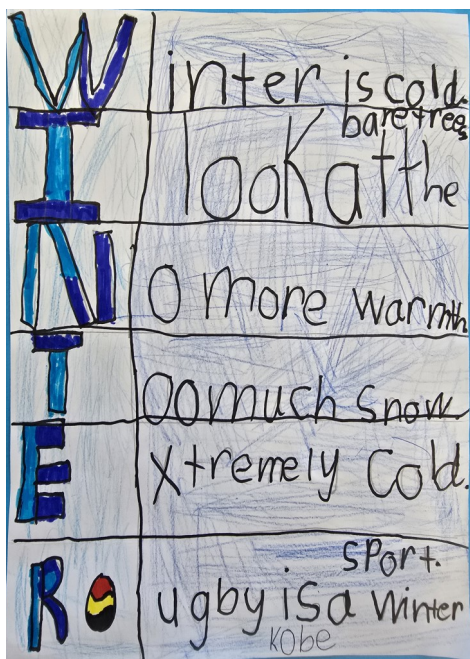 Winter is cold.
I look at the
bare trees
No more warmth
Too much snow
Extremely Cold.
Rugby is a winter
sport.
Kobe